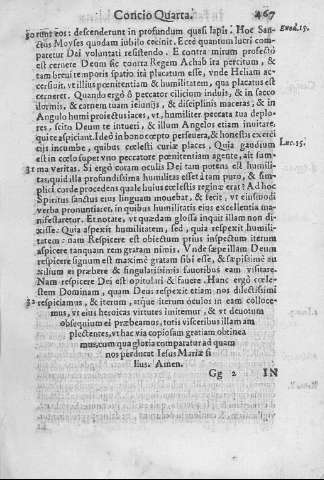 Concio Quarta. 467
runt eos: descenderunt in profundum quasi lapis. Hoc San- Exod.15.
ctus Moyses quodam iubilo cecinit. Ecce quantum lucri com-
paretur Dei voluntati resistendo. E contra mirum profecto
est cernere Deum sic contra Regem Achab ira percitum, &
tam breui temporis spatio ita placatum esse, vnde Heliam ac-
cersiuit, vt illius pœnitentiam & humilitatem, qua placatus est
cerneret. Quando ergo ô peccator cilicium induis, & in sacco
dormis, & carnem tuam ieiunijs, & disciplinis maceras, & in
Angulo humi proiectus iaces, vt, humiliter peccata tua deplo-
res, scito Deum te intueri, & illum Angelos etiam inuitare,
qui te aspiciant. Ideò in bono cœpto perseuera, & honestis exerci
tijs incumbe, quibus cœlesti curiæ places. Quia gaudium Luc.15.
est in cœlo super vno peccatore pœnitentiam agente, ait sum-
31 ma veritas. Si ergò coram oculis Dei tam potens est humili-
tas, quid illa profundissima humilitas esset à tam puro, & sim-
plici corde procedens quale huius cœlestis reginæ erat? Ad hoc
Spiritus sanctus eius linguam mouebat, & fecit, vt eiusmodi
verba pronuntiaret, in quibus humilitatis eius excellentia ma-
nifestaretur. Et notate, vt quædam glossa inquit illam non di-
xisse. Quia aspexit humilitatem, sed, quia respexit humili-
tatem: nam Respicere est obiectum prius inspectum iterum
aspicere tanquam rem gratam nimis. Vnde sæpe illam Deum
respicere signum est maximè gratam sibi esse, & sæpissimè au
xilium ei præbere & singularissimis fauoribus eam visitare.
Nam respicere Dei est opitulari & fauere. Hanc ergò cœle-
stem Dominam, quam Deus respexit etiam nos dilectissimi
32 respiciamus, & iterum, atque iterum oculos in eam colloce-
mus, vt eius heroicas virtutes imitemur, & vt deuotum
obsequium ei præbeamus, totis visceribus illam am
plectentes, vt hac via copiosam gratiam obtinea
mus, cum qua gloria comparatur ad quam
nos perducat Iesus Mariæ fi
lius. Amen.
Gg 2 IN